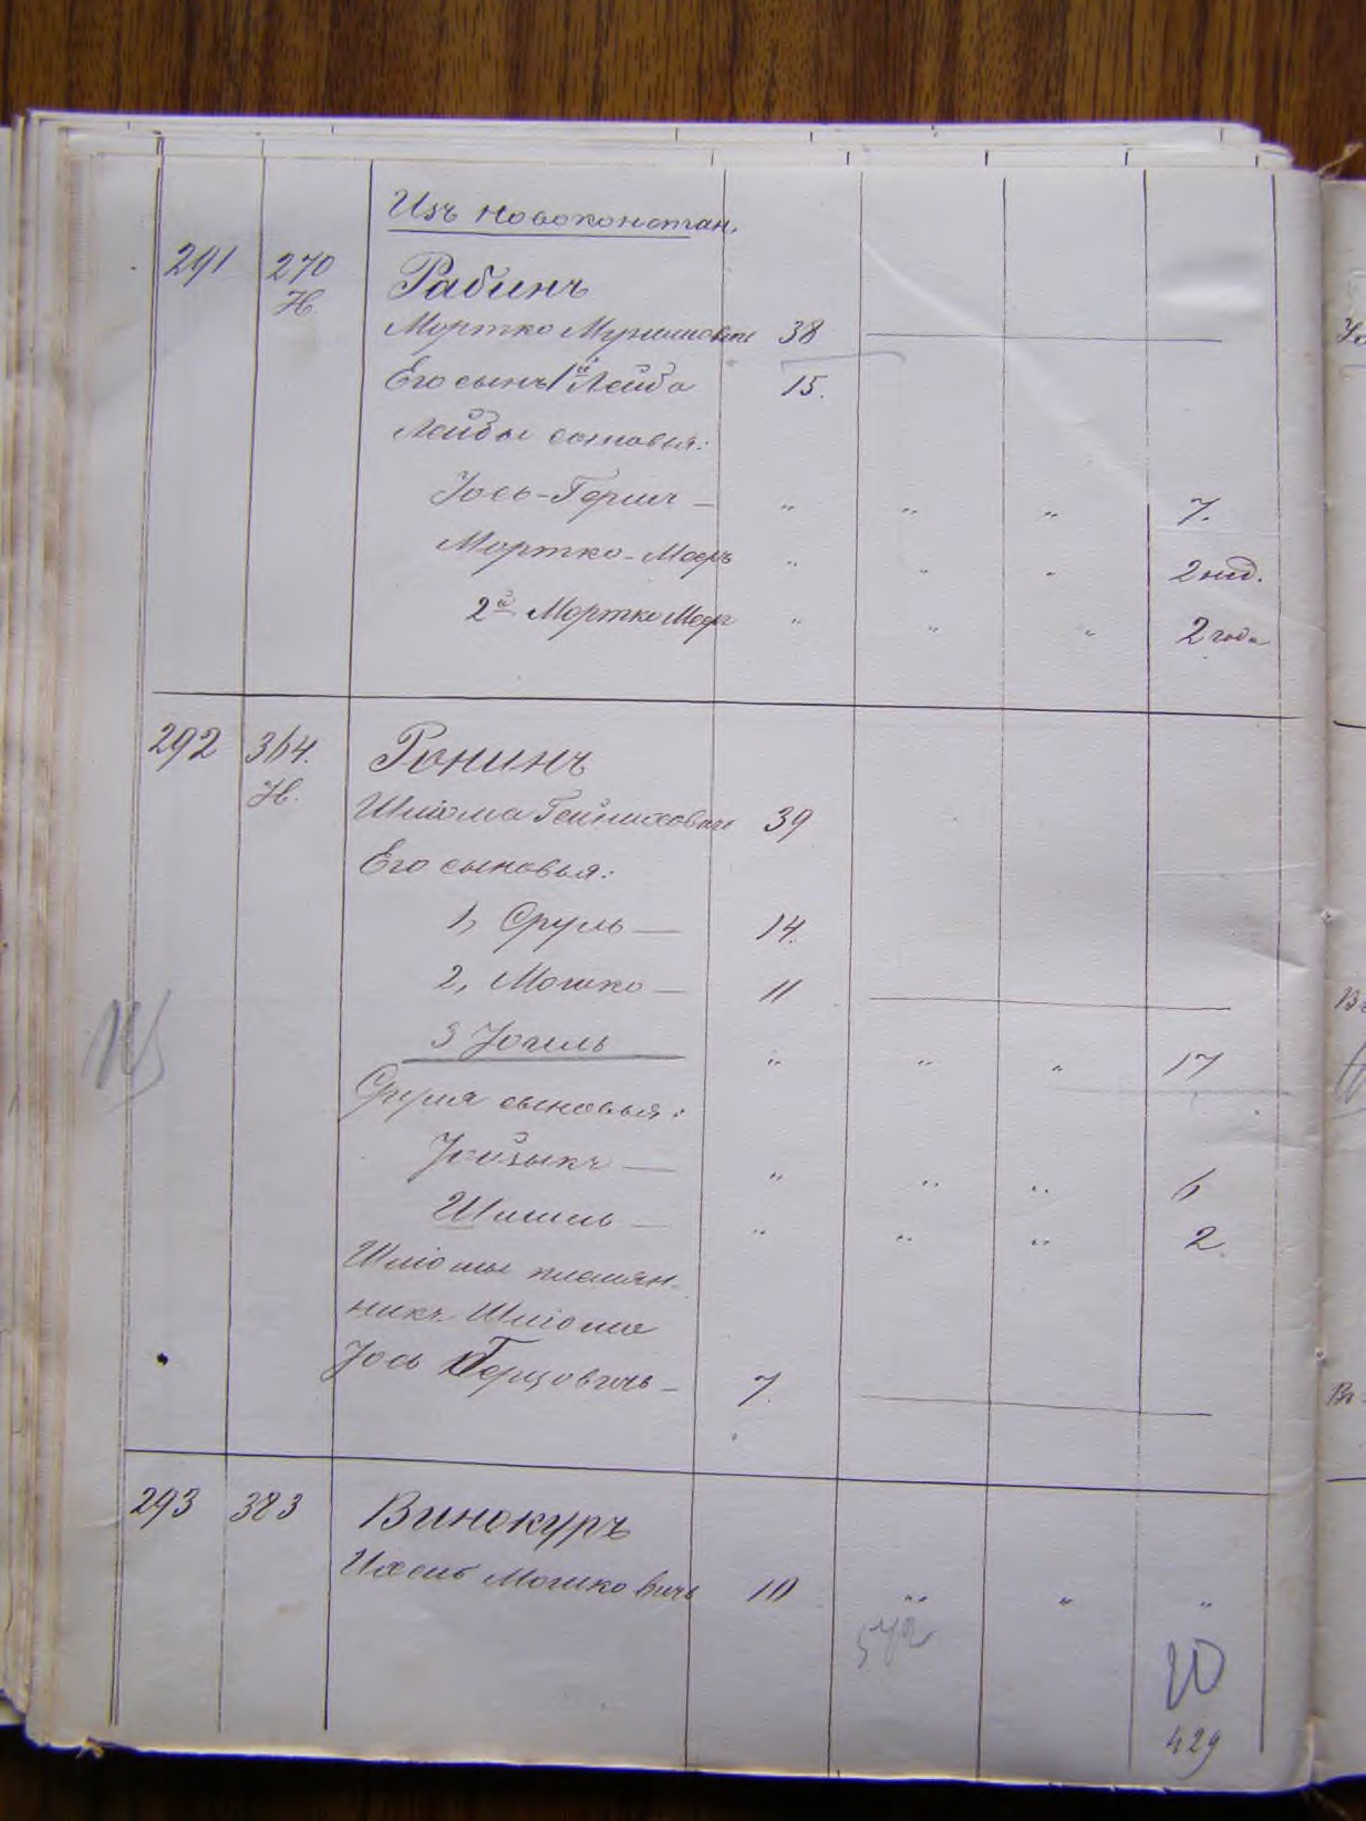 Изъ Новоконстан.
291 270 Рабинъ
Н.
Мортко Мунишовичъ 38
Его сынъ 1й Лейба 15.
Лейбы сыновья:
Іось-Гершъ — " " " 7.
Мортко-Меер " " " 2 нед.
2й Мортко Меер " " " 2 года
292 364. Ронинъ
Н.
Шліома Гейнаховичъ 39
Его сыновья:
1, Сруль — 14.
2, Мошко — 11
3 Іогиль " " " 17
Сруля сыновья:
Іойзыкъ — " " " 6
— " " " 2
Шліомы племян-
никъ Шліома
Іось Герцовичъ — 7.
293 383 Винокуръ
Мошковичъ 10 " " "
20
429